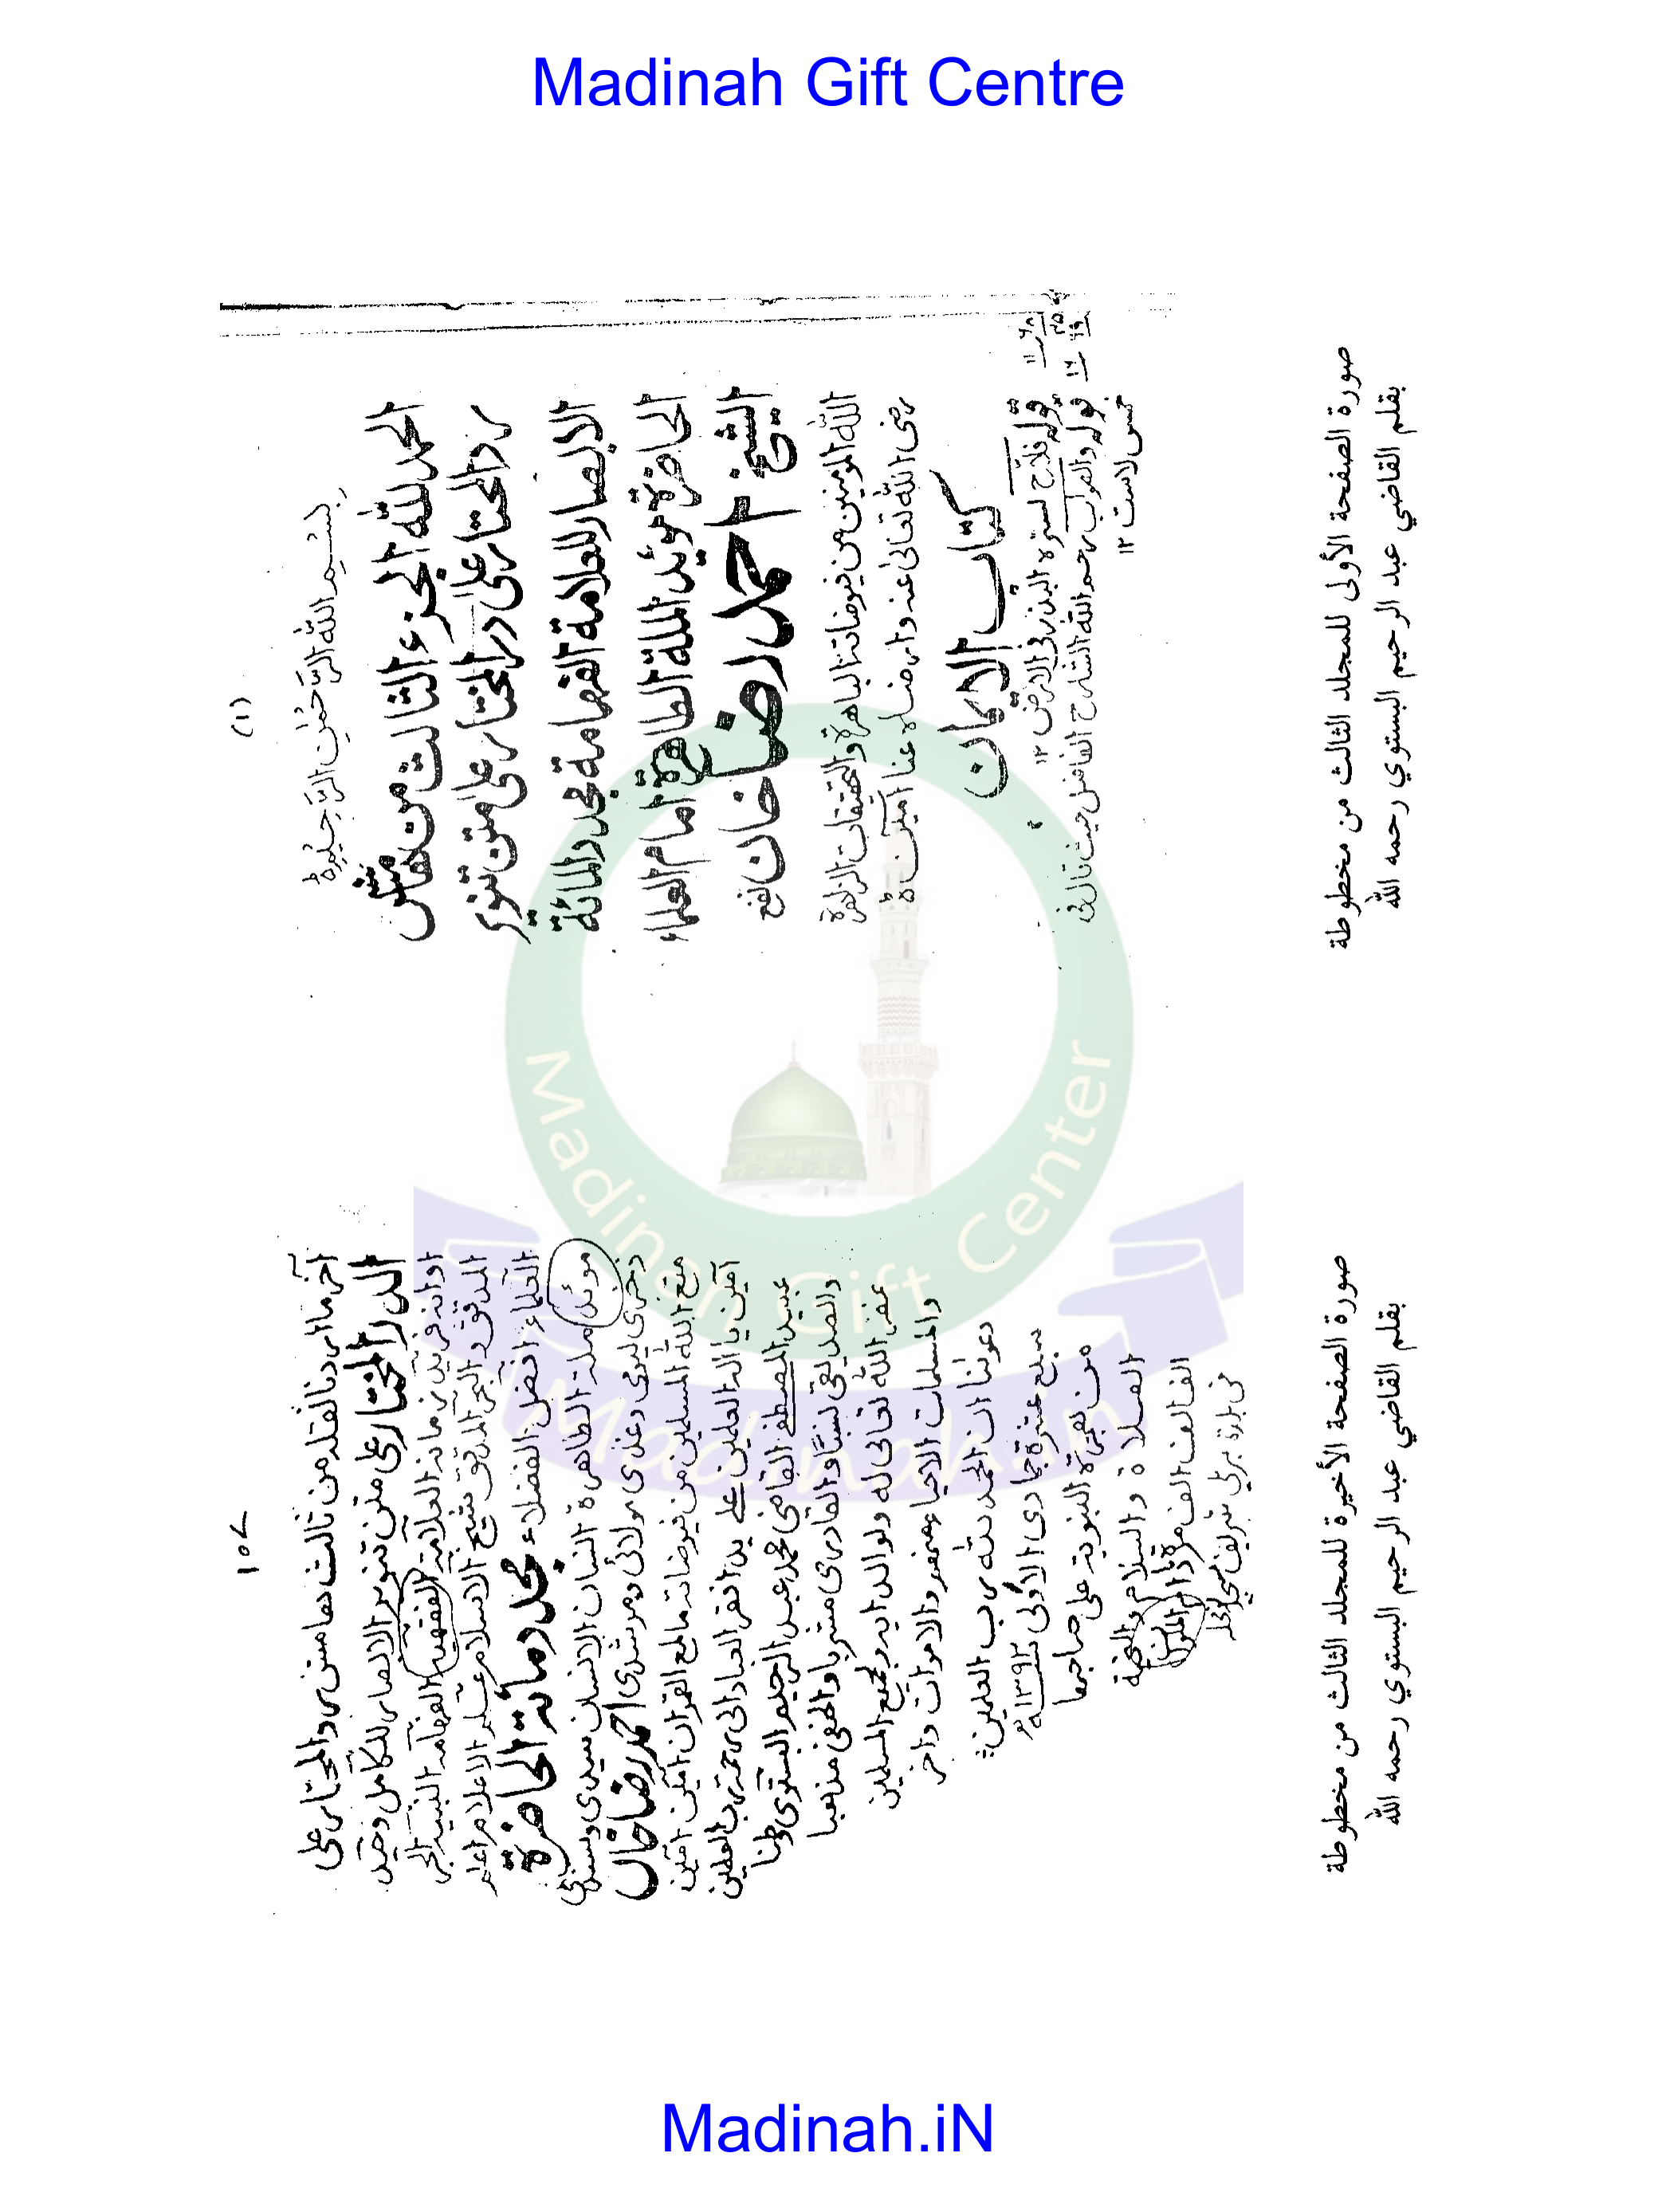 Madinah Gift Centre
(١)
بسم الله الرحمن الرحيم
الحمد لله الجزء الثالث من هامش
رد المحتار على در المختار على متن تنوير
الابصار للعلامة الفهامة مجدد المائة
الحاضرة مؤيد الملة الطاهرة امام العلماء
الشيخ احمد رضا خان نفع
الله المؤمنين من فيوضاته الباهرة والتحقيقات الزاهرة
رضى الله تعالى عنه وارضاه عنا آمين
كتاب الايمان
قوله فلاح لستره البذر فى الارض ١٢
قوله والصواب رحمه الله الشارح الفاضل حيث قال فى
١٢
صورة الصفحة الأولى للمجلد الثالث من مخطوطة
بقلم القاضي عبد الرحيم البستوي رحمه الله
١٥٧
آخر ما اردنا نقله من ثالث هامش رد المحتار على
الدر المختار على متن تنوير الابصار للكامل وحيد
اوانه فريد زمانه العلامة الفقيه الفهامه النبيه الحبر
المدقق والبحر المدقق شيخ الاسلام علم الاعلام اعلم
العلماء افضل الفضلاء مجدد مأته الحاضرة
مؤيد ملة الطاهرة انسان الانسان سيدى وسندى
ذخرى ليومى وغدى مولائى ومرشدى احمد رضا خان
متع الله المسلمين من فيوضاته مالمع القمران آمين آمين
آمين يا اله العلمين على يد افقر العباد الى رحمة رب العلمين
عبيد المصطفى القاضى محمد عبد الرحيم البستوى وطنا
والصديقى نسبًا والقادرى مشربا والحنفى مذهبا
غفر الله تعالى له ولوالديه ولجميع المسلمين
والمسلمات الاحياء منهم والاموات واخر
دعوٰنا ان الحمد لله رب العلمين
سبع عشرة جمادى الاولى ١٣٩٢ه
من هجرة النبوية على صاحبها
الصلاة والسلام والتحية
الف الف الف مرة
فى بلدة بريلى شريف
صورة الصفحة الأخيرة للمجلد الثالث من مخطوطة
بقلم القاضي عبد الرحيم البستوي رحمه الله
Madinah Gift Center
Madinah.in
Madinah.iN